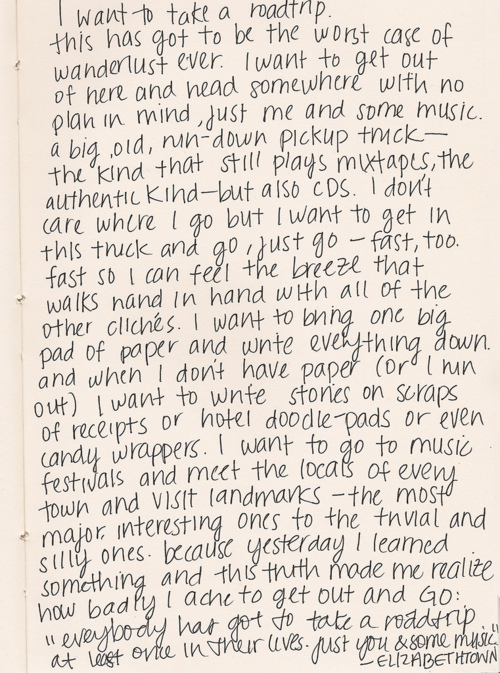 I want to take a roadtrip.
this has got to be the worst case of
wanderlust ever. I want to get out
of here and head somewhere with no
plan in mind, just me and some music.
a big, old, run-down pickup truck—
the kind that still plays mixtapes, the
authentic kind—but also CDs. I don't
care where I go but I want to get in
this truck and go, just go – fast, too.
fast so I can feel the breeze that
walks hand in hand with all of the
other clichés. I want to bring one big
pad of paper and write everything down.
and when I don't have paper (or I run
out) I want to write stories on scraps
of receipts or hotel doodle-pads or even
candy wrappers. I want to go to music
festivals and meet the locals of every
town and visit landmarks – the most
major, interesting ones to the trivial and
silly ones. because yesterday I learned
something and this truth made me realize
how badly I ache to get out and GO:
"everybody has got to take a roadtrip
at least once in their lives. just you & some music"
– ELIZABETHTOWN